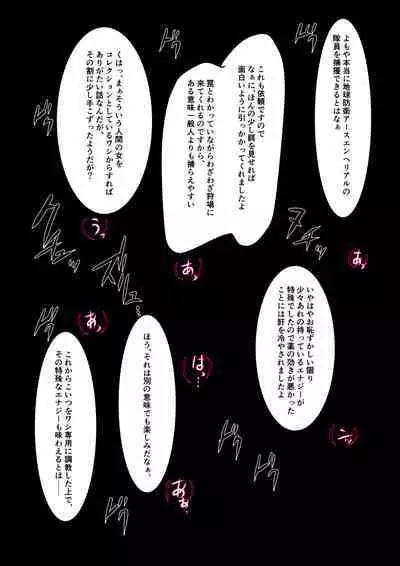 よもや本当に地球防衛アースエンヘリアルの
隊員を捕獲できるとはなぁ
これも依頼ですので
なぁに、ほんの少し餌を見せれば
面白いように引っかかってくれましたよ
罠とわかっていながらわざわざ狩場に
来てくれるのですから、
ある意味一般人よりも捕らえやすい
くはっ、まぁそういう人間の女を
コレクションとしているワシからすれば
ありがたい話なんだが、
その割に少し手こずったようだが?
ヌチッ
(あっ)
(うっ)
グチュッ
ずしゅ
いやはやお恥ずかしい限り
少々あれの持っているエナジーが
特殊でしたので薬の効きが悪かった
ことには肝を冷やされましたよ
(あっ)
(はっ…)
ほう、それは別の意味でも楽しみだなぁ、
(ンッ)
(あぁっ)
これからこいつをワシ専用に調教した上で、
その特殊なエナジーも味わえるとは――